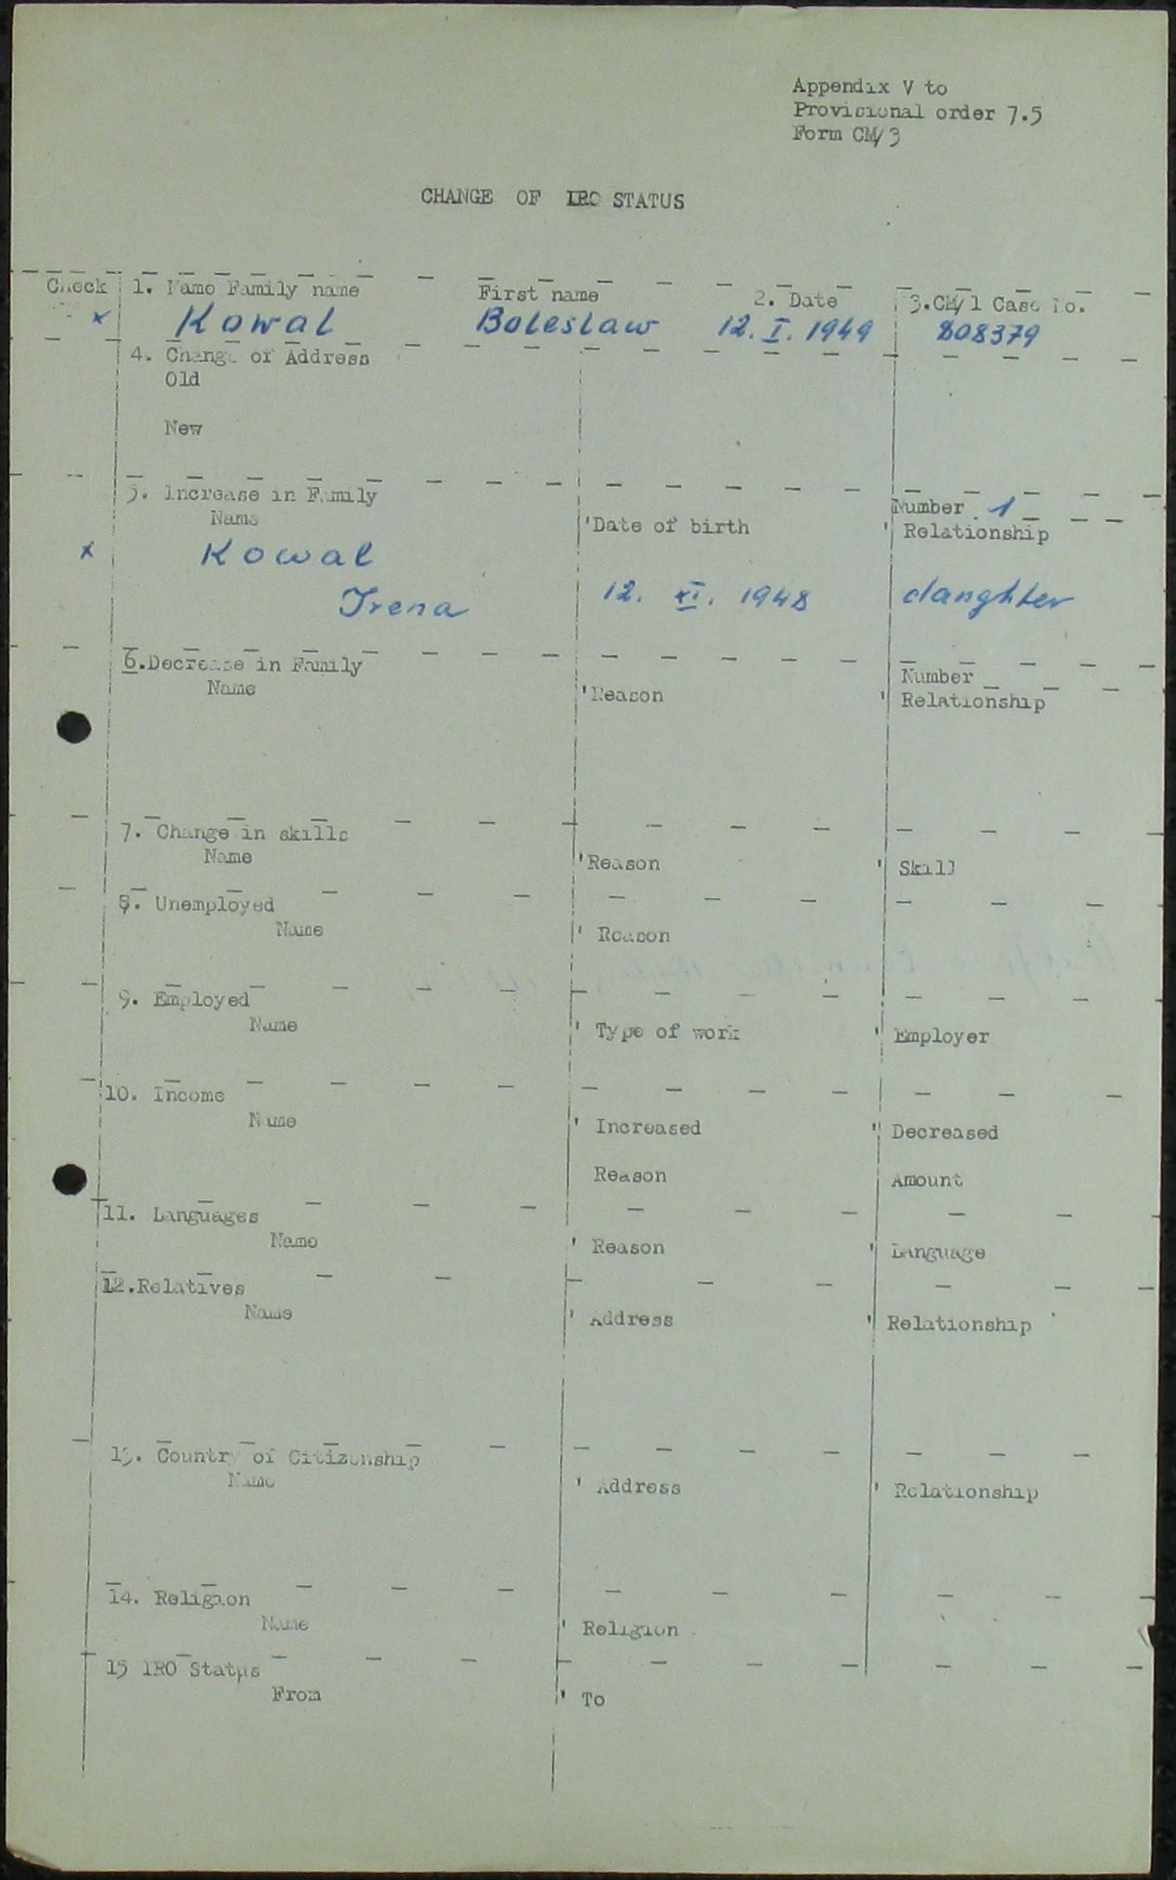 Appendix V to
Provisional order 7.5
Form CM/3
CHANGE OF IRO STATUS
Check 1. Name Family name First name 2. Date 3.CM/1 Case No.
x Kowal Boleslaw 12. I. 1949 808379
4. Change of Address
Old
New
5. Increase in Family Number 1
Name 'Date of birth ' Relationship
x Kowal
Irena 12. XI. 1948 daughter
6.Decrease in Family Number
Name 'Reason ' Relationship
7. Change in skills
Name 'Reason ' Skill
8. Unemployed
Name ' Reason
9. Employed
Name ' Type of work ' Employer
10. Income
Name ' Increased ' Decreased
Reason Amount
11. Languages
Name ' Reason ' Language
12.Relatives
Name ' Address ' Relationship
13. Country of Citizenship
Name ' Address ' Relationship
14. Religion
Name ' Religion
15 IRO Status
From ' To